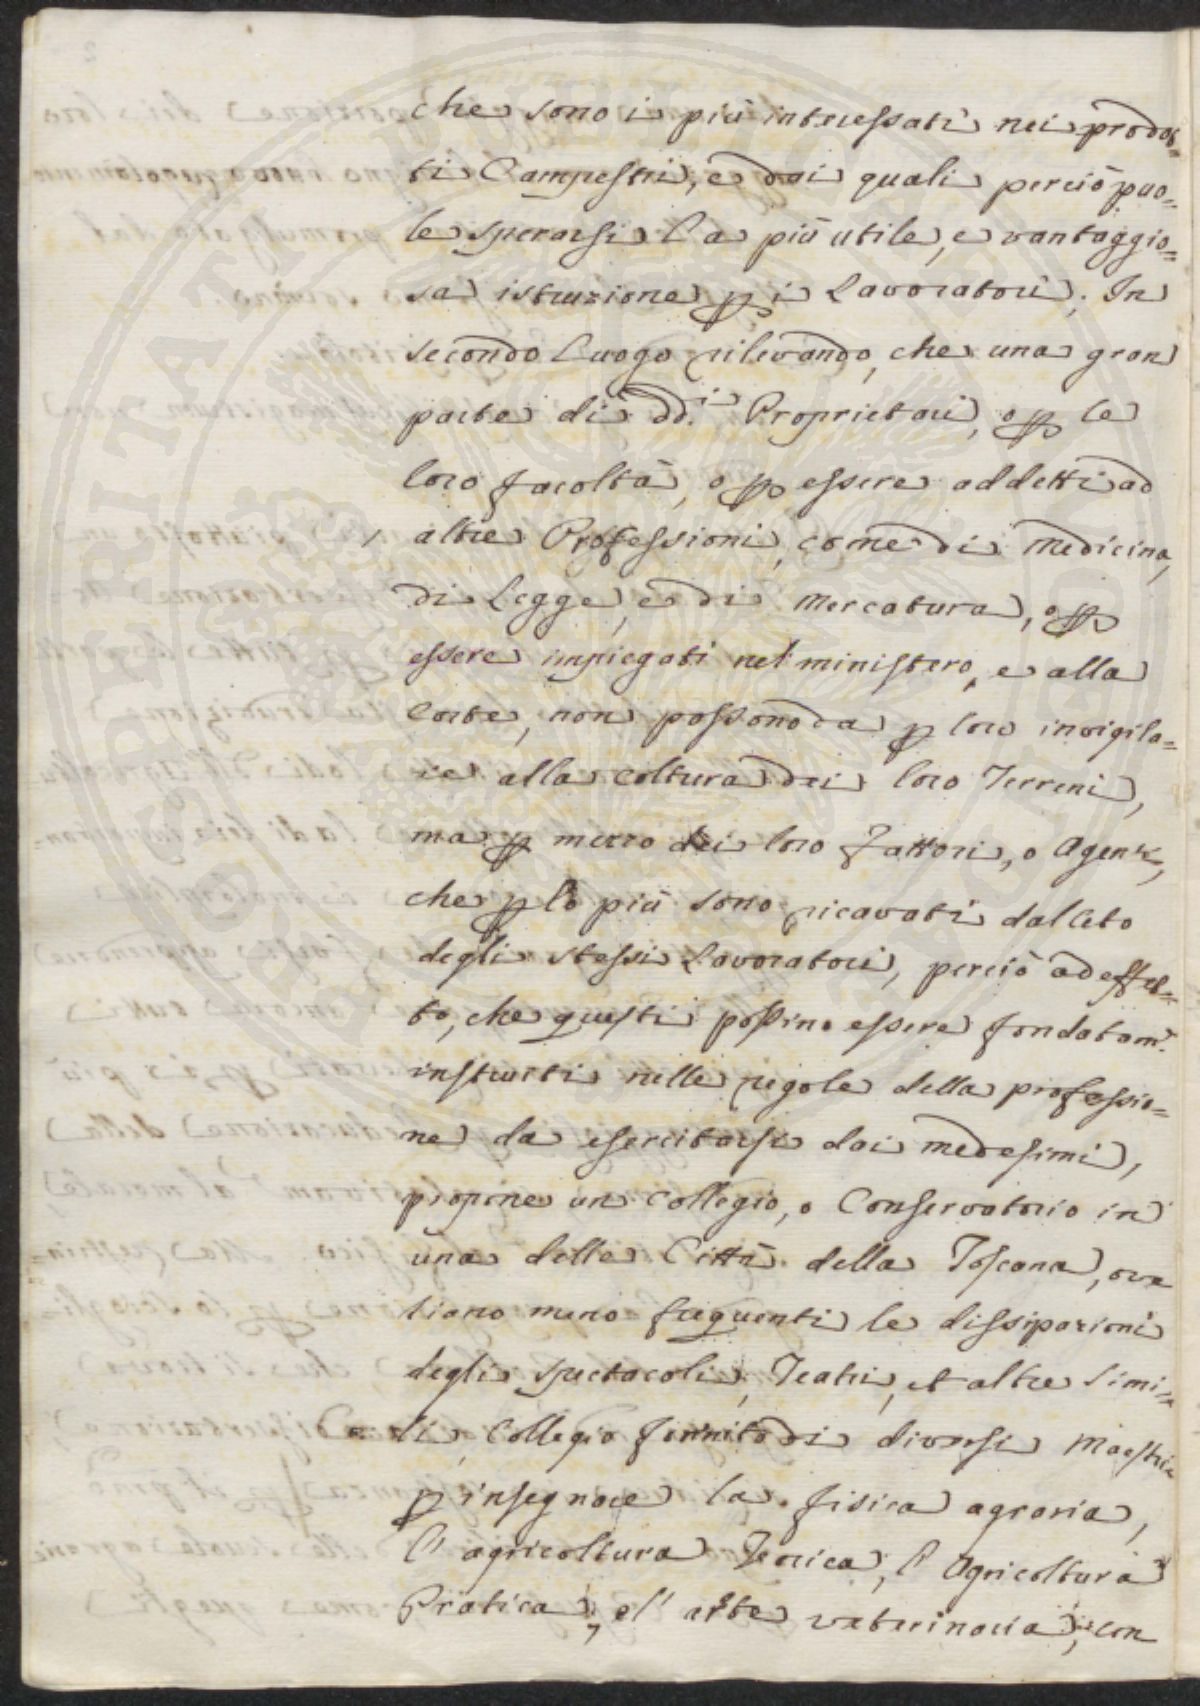 che sono i più interessati nei prodot=
ti Campestri, e dai quali perciò puo=
le sperarsi la più utile, e vantaggio=
sa istruzione p i Lavoratori; In
secondo Luogo rilevando, che una gran
parte di dd.i Proprietari, o p le
loro facoltà, o p essere addetti ad
altre Professioni, come di Medicina,
di Legge, e di Mercatura, o p
essere impiegati nel ministero, e alla
Corte, non possono da p loro invigila=
re alla coltura dei loro Terreni,
ma p mezzo dei loro Fattori, o Agenti,
che p lo più sono ricavati dal Ceto
degli stessi Lavoratori, perciò ad effet=
to, che questi possino essere fondatam.
instruiti nelle regole della professio=
ne da esercitarsi dai medesimi,
propone un Collegio, o Conservatorio in
una delle Città della Toscana, ove
siano meno frequenti le dissipazioni
degli spettacoli, Teatri, et altre simi=
li, Collegio fornito di diversi Maestri
p insegnare la fisica agraria,
l' agricoltura Teorica, l' Agricoltura
Pratica, e l' arte veterinaria, con
HOSPERITATI PUBLICAE